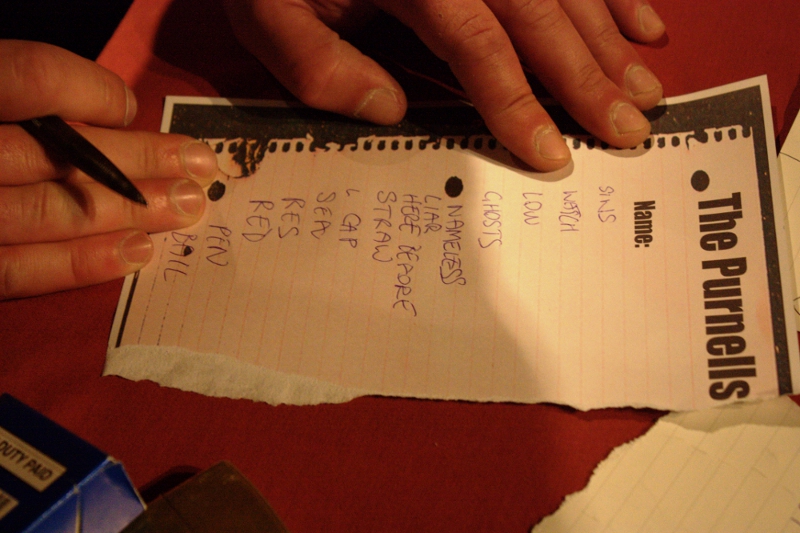 The Purnells
Name:
SINS
WATCH
LOW
GHOSTS
NAMELESS
LIAR
HERE BEFORE
STRAW
L CAP
SEA
RES
RED
PEN
BAIL
DUTY PAID